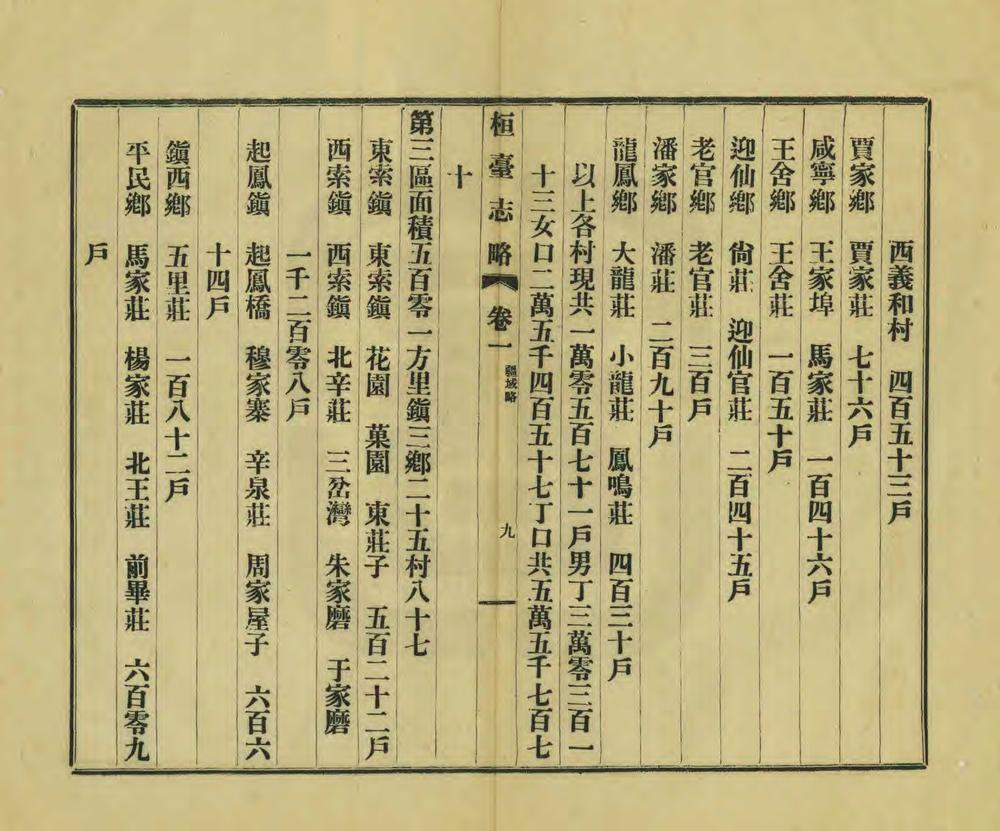 西義和村　四百五十三戶
賈家鄉　賈家莊　七十六戶
咸寧鄉　王家埠　馬家莊　一百四十六戶
王舍鄉　王舍莊　一百五十戶
迎仙鄉　尙莊　迎仙官莊　二百四十五戶
老官鄉　老官莊　三百戶
潘家鄉　潘莊　二百九十戶
龍鳳鄉　大龍莊　小龍莊　鳳鳴莊　四百三十戶
以上各村現共一萬零五百七十一戶男丁三萬零三百一
十三女口二萬五千四百五十七丁口共五萬五千七百七
桓臺志略　卷一　疆域略　九
十
第三區面積五百零一方里鎭三鄉二十五村八十七
東索鎭　東索鎭　花園　菓園　東莊子　五百二十二戶
西索鎭　西索鎭　北辛莊　三岔灣　朱家磨　于家磨
一千二百零八戶
起鳳鎭　起鳳橋　穆家寨　辛泉莊　周家屋子　六百六
十四戶
鎭西鄉　五里莊　一百八十二戶
平民鄉　馬家莊　楊家莊　北王莊　前畢莊　六百零九
戶